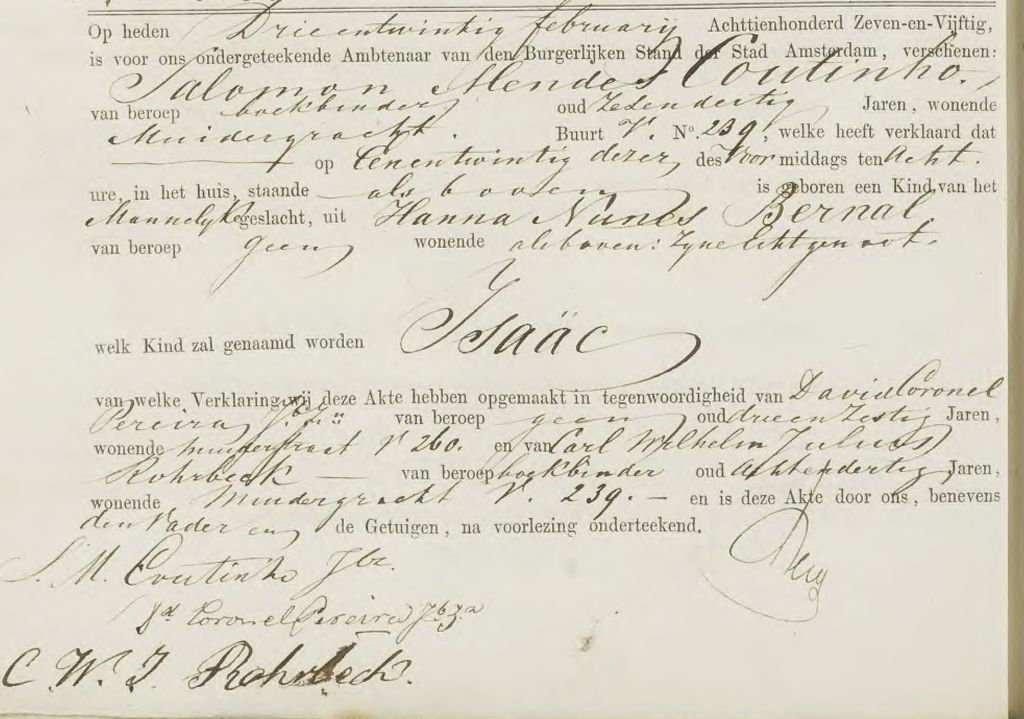 Op heden Drieentwintig februarij Achttienhonderd Zeven-en-Vijftig,
is voor ons ondergeteekende Ambtenaar van den Burgerlijken Stand der Stad Amsterdam, verschenen:
Salomon Mendes Coutinho.
van beroep boekbinder oud Zesendertig Jaren, wonende
Muidergracht. Buurt V. No. 239, welke heeft verklaard dat
op Eenentwintig dezer des Voormiddags ten Acht
ure, in het huis, staande als boven is geboren een Kind, van het
Mannelijke geslacht, uit Hanna Nunes Bernal,
van beroep geen wonende als boven: Zyne Echtgenoot.
welk Kind zal genaamd worden Isaäc
van welke Verklaring wij deze Akte hebben opgemaakt in tegenwoordigheid van David Coronel
Pereira van beroep geen oud drieenzestig Jaren,
wonende V 260. en van Carl Wilhelm Julius
Rohrbeck van beroep boekbinder oud Achtendertig Jaren,
wonende Muidergracht V. 239. en is deze Akte door ons, benevens
den Vader en de Getuigen, na voorlezing onderteekend.
S. M. Coutinho Jbz.
Dd Coronel Pereira
C. W. J. Rohrbeck.